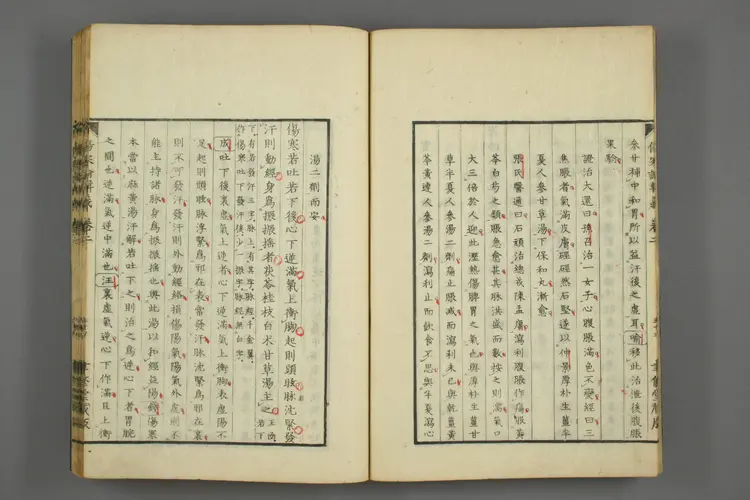 參甘補中和胃所以益汗後之虛耳喻移此治泄後腹脹
果驗
證治大還曰孫召治一女子心腹脹滿色不變經曰三
焦脹者氣滿皮膚硜硜然石堅遂以仲景厚朴生薑半
夏人參甘草湯下保和丸漸愈
張氏醫通曰石頑治總戎陳孟庸瀉利腹脹作痛服黃
芩白芍之類脹急愈甚其脉洪盛而數按之則濡氣口
大三倍於人迎此溼熱傷脾胃之氣也與厚朴生薑甘
草半夏人參湯二劑痛止脹減而瀉利未已與乾薑黃
芩黃連人參湯二劑瀉利止而飲食不思與半夏瀉心
湯二劑而安
傷寒若吐若下後心下逆滿氣上衝胸起則頭眩脉沈緊發
汗則動經身爲振振搖者茯苓桂枝白朮甘草湯主之
成吐下後裏虛氣上逆者心下逆滿氣上衝胸表虛陽不
足起則頭眩脉浮緊爲邪在表當發汗脉沈緊爲邪在裏
則不可發汗發汗則外動經絡損傷陽氣陽氣外虛則不
能主持諸脉身爲振振搖也與此湯以和經益陽
本當以麻黃湯汗解若吐下之則治之爲逆心下者胃脘
之間也逆滿氣逆中滿也汪裏虛氣逆心下作滿且上衝